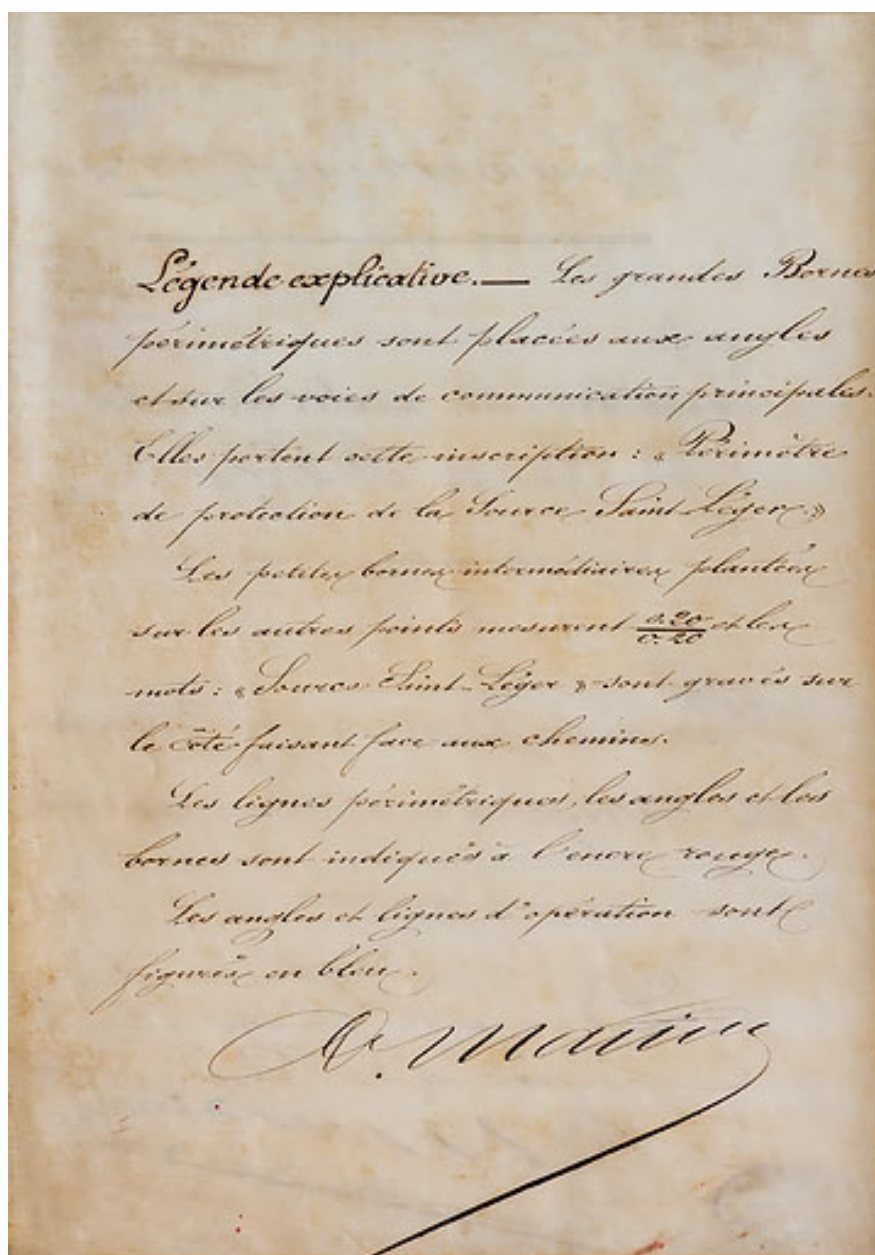 Légende explicative. — Les grandes Bornes
périmétriques sont placées aux angles
et sur les voies de communication principales.
Elles portent cette inscription : « Périmètre
de protection de la Source Saint-Léger. »
Les petites bornes intermédiaires plantées
sur les autres points mesurent 0.20/0.20 et les
mots : « Source Saint-Léger » sont gravés sur
le côté faisant face aux chemins.
Les lignes périmétriques, les angles et les
bornes sont indiqués à l'encre rouge.
Les angles et lignes d'opération sont
figurés en bleu.